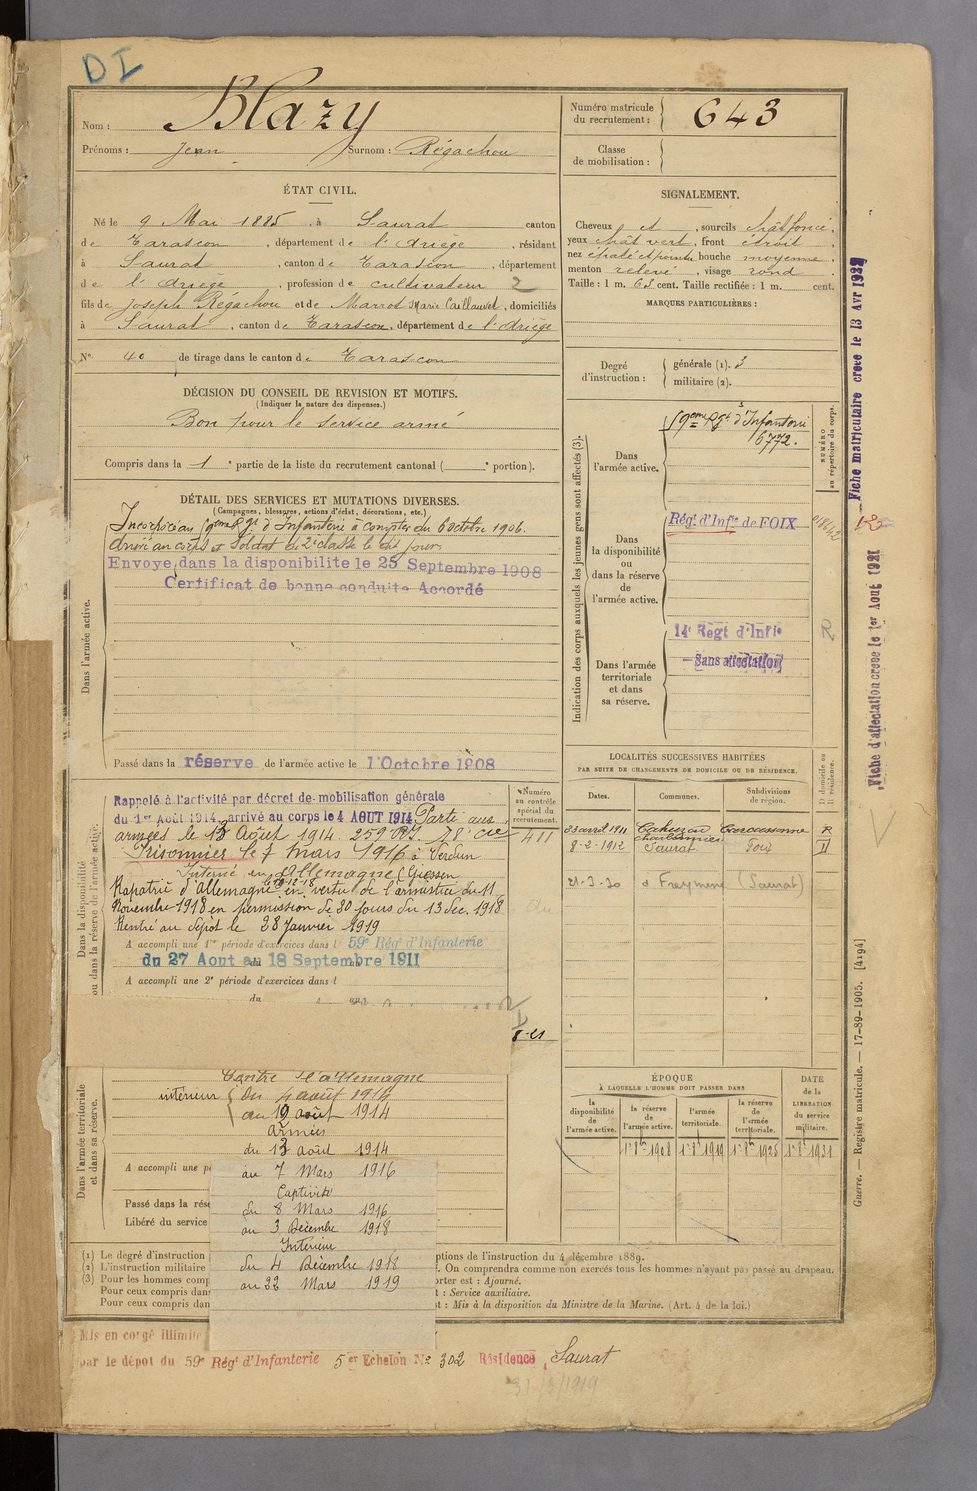 DI
Nom : Blazy
Prénoms : Jean Surnom : Régachou
Numéro matricule du recrutement : 643
Classe de mobilisation :
ÉTAT CIVIL.
Né le 9 Mai 1885, à Saurat canton
de Tarascon, département de l'Ariège, résidant
à Saurat, canton de Tarascon, département
de l'Ariège, profession de cultivateur 2
fils de Joseph Régachou et de Marrot Marie Caillauvet, domiciliés
à Saurat, canton de Tarascon, département de l'Ariège
N° 40 de tirage dans le canton de Tarascon
SIGNALEMENT.
Cheveux et, sourcils chât foncé,
yeux chât vert, front étroit,
nez épaté et pointu bouche moyenne,
menton relevé, visage rond
Taille : 1 m. 63 cent. Taille rectifiée : 1 m. cent.
MARQUES PARTICULIÈRES :
Degré d'instruction : générale (1). 3
militaire (2).
DÉCISION DU CONSEIL DE REVISION ET MOTIFS.
(Indiquer la nature des dispenses.)
Bon pour le service armé
Compris dans la 1e partie de la liste du recrutement cantonal ( e portion).
DÉTAIL DES SERVICES ET MUTATIONS DIVERSES.
(Campagnes, blessures, actions d'éclat, décorations, etc.)
Dans l'armée active.
Incorporé au 59eme Rgt d'Infanterie à compter du 6 octobre 1906.
Arrivé au corps et Soldat de 2e classe le dit jour
Envoyé dans la disponibilité le 25 Septembre 1908
Certificat de bonne conduite Accordé
Passé dans la réserve de l'armée active le 1 Octobre 1908
Indication des corps auxquels les jeunes gens sont affectés (3).
NUMÉRO au répertoire du corps.
Dans l'armée active.
59eme Rgt d'Infanterie
6772.
Dans la disponibilité ou dans la réserve de l'armée active.
Régt d'Infie de FOIX
Dans l'armée territoriale et dans sa réserve.
14e Régt d'Infie
Sans affectation
R
Fiche matriculaire créée le 13 Avr
Fiche d'affectation créée le 1er Aout 1921
Dans la disponibilité ou dans la réserve de l'armée active.
Numéro au contrôle spécial du recrutement.
411
Rappelé à l'activité par décret de mobilisation générale
du 1er Août 1914, arrivé au corps le 4 AOUT 1914 Parti aux
armées le 13 Août 1914. 259 RI. 18e Cie
Prisonnier le 7 mars 1916 à Verdun
Interné en Allemagne (Giessen
Rapatrié d'Allemagne en vertu de l'armistice du 11
Novembre 1918 en permission de 30 jours du 13 Déc. 1918
Rentré au dépôt le 28 Janvier 1919
A accompli une 1re période d'exercices dans l 59e Régt d'Infanterie
du 27 Aout au 18 Septembre 1911
A accompli une 2e période d'exercices dans l
du au
8-21
LOCALITÉS SUCCESSIVES HABITÉES
PAR SUITE DE CHANGEMENTS DE DOMICILE OU DE RÉSIDENCE.
Dates. Communes. Subdivisions de région. D domicile ou R résidence.
23 avril 1911 Cahuzac Carcassonne R
8-2-1912 Saurat Foix D
21-3-30 a Freymene (Saurat)
Dans l'armée territoriale et dans sa réserve.
Contre l'allemagne
intérieur du 4 août 1914
au 19 août 1914
Armées
du 13 août 1914
au 7 Mars 1916
Captivité
du 8 Mars 1916
au 3 Décembre 1918
Intérieur
du 4 Décembre 1918
au 22 Mars 1919
A accompli une p
Passé dans la rése
Libéré du service
ÉPOQUE
À LAQUELLE L'HOMME DOIT PASSER DANS
la disponibilité de l'armée active. la réserve de l'armée active. l'armée territoriale. la réserve de l'armée territoriale.
DATE de la LIBÉRATION du service militaire.
1er 8bre 1908 1er 8bre 1919 1er 8bre 1925 1er 8bre 1931
(1) Le degré d'instruction ptions de l'instruction du 4 décembre 1889.
(2) L'instruction militaire f. On comprendra comme non exercés tous les hommes n'ayant pas passé au drapeau.
(3) Pour les hommes comp orter est : Ajourné.
Pour ceux compris dans t : Service auxiliaire.
Pour ceux compris dan st : Mis à la disposition du Ministre de la Marine. (Art. 4 de la loi.)
Guerre. — Registre matricule. — 17-89-1905. [4194]
Mis en congé illimité
par le dépôt du 59e Régt d'Infanterie 5er Echelon N° 302 Résidence Saurat
31/3/1919